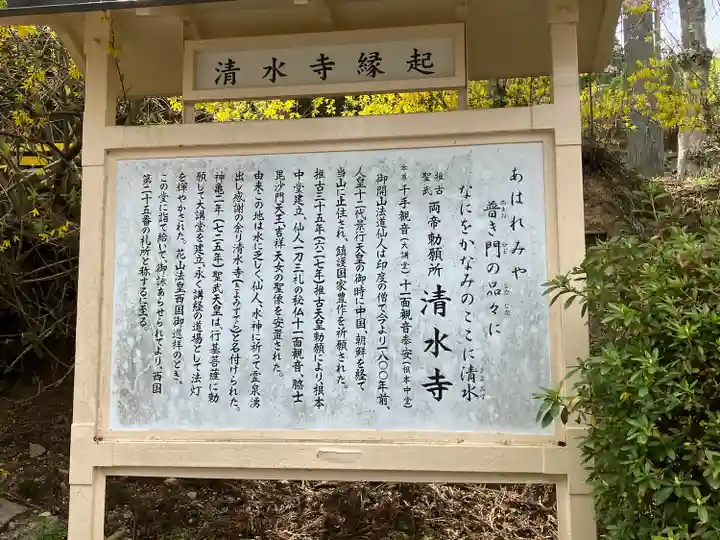 清水寺縁起
あはれみや
普き門の品々に
なにをかなみのここに清水
推古
聖武
両帝勅願所 清水寺
本尊 千手観音(大講堂)十一面観音奉安(根本中堂)
御開山法道仙人は印度の僧で、今より一八〇〇年前、
人皇十二代景行天皇の御時に中国、朝鮮を経て
当山に止住され、鎮護国家豊作を祈願された。
推古三十五年(六二七年)推古天皇勅願により根本
中堂建立、仙人一刀三礼の秘仏十一面観音、脇士
毘沙門天王、吉祥天女の聖像を安置された。
由来この地は水に乏しく、仙人、水神に祈って霊泉湧
出し感謝の余り清水寺(きよみずでら)と名付けられた。
神亀二年(七二五年)聖武天皇は、行基菩薩に勅
願して大講堂を建立、永く講経の道場として法灯
を輝やかされた。花山法皇西国御巡拝のとき、
この堂に詣で給いて、御詠あらせられてより、西国
第二十五番の礼所と称するに至る。